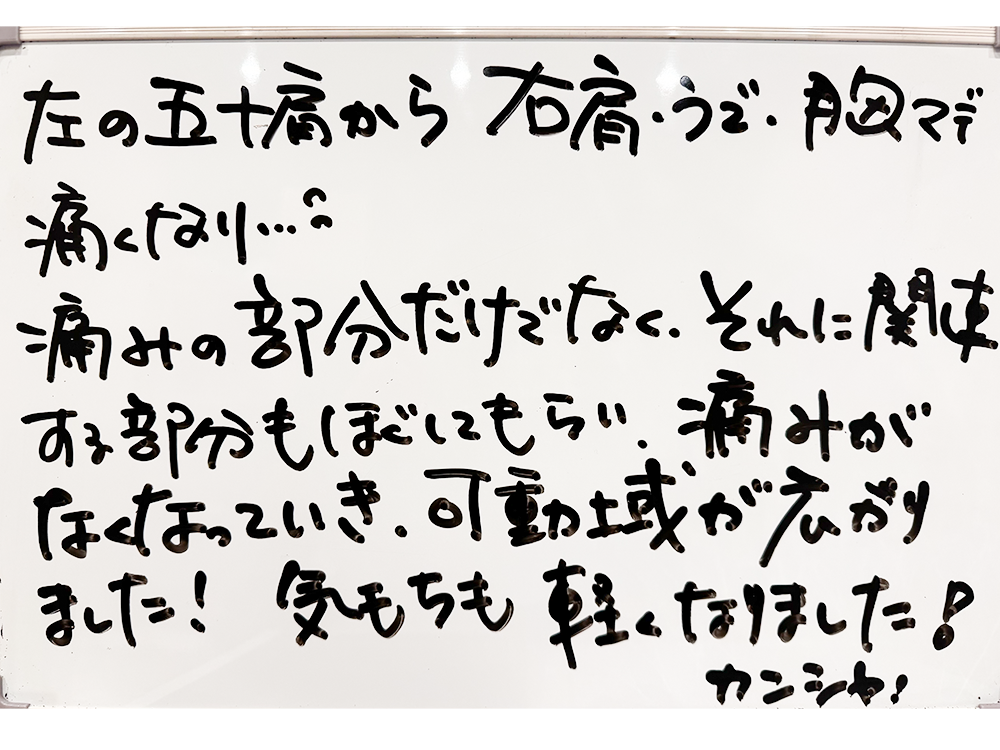 左の五十肩から 右肩・うで・胸マデ
痛くなり…
痛みの部分だけでなく、それに関連
する部分もほぐしてもらい、痛みが
なくなっていき、可動域が広がり
ました! 気もちも軽くなりました!
カンシャ!